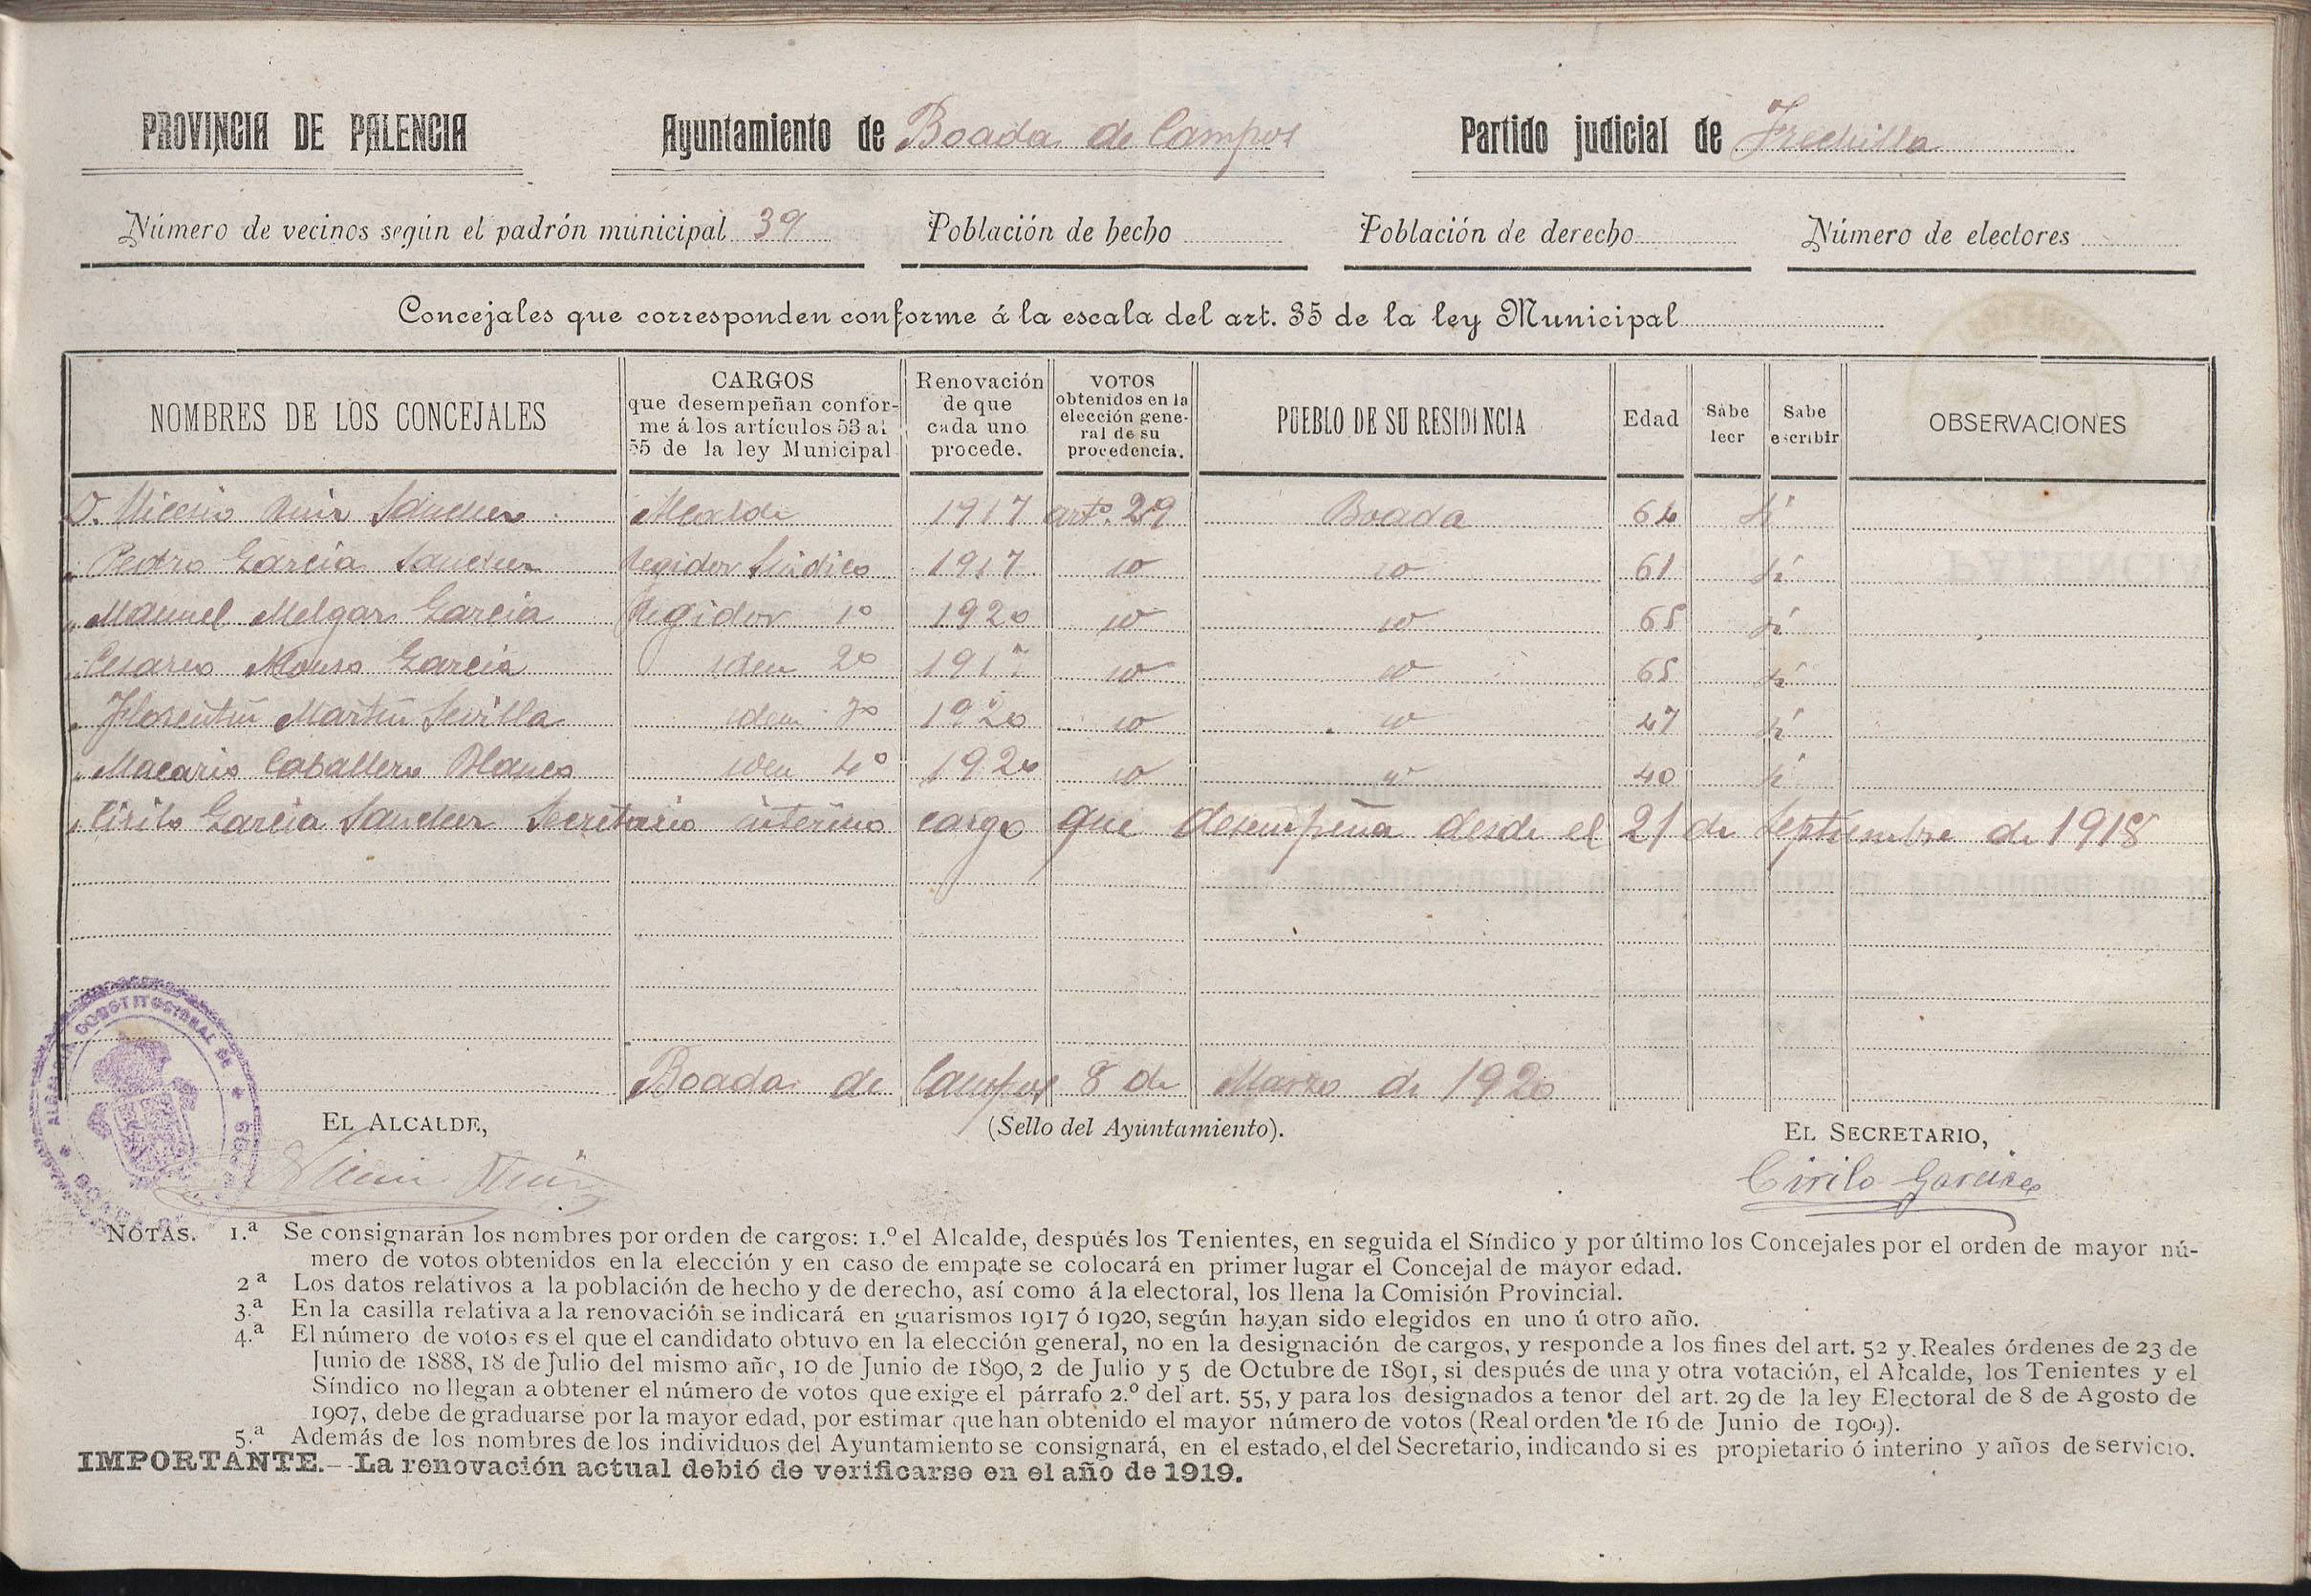 PROVINCIA DE PALENCIA Ayuntamiento de Boada de Campos Partido judicial de Frechilla
Número de vecinos según el padrón municipal 39 Población de hecho Población de derecho Número de electores
Concejales que corresponden conforme á la escala del art. 35 de la ley Municipal
NOMBRES DE LOS CONCEJALES CARGOS que desempeñan conforme á los artículos 53 al 55 de la ley Municipal Renovación de que cada uno procede. VOTOS obtenidos en la elección general de su procedencia. PUEBLO DE SU RESIDENCIA Edad Sabe leer Sabe escribir OBSERVACIONES
D. Nicesio Ruiz Sanchez Alcalde 1917 artº. 29 Boada 64 si
" Pedro Garcia Sanchez Regidor Sindico 1917 id id 61 si
" Manuel Melgar Garcia Regidor 1º 1920 id id 65 si
" Cesareo Alonso Garcia idem 2º 1917 id id 65 si
" Florentin Martin Sevilla idem 3º 1920 id id 47 si
" Macario Caballero Blanco idem 4º 1920 id id 40 si
" Cirilo Garcia Sanchez Secretario interino cargo que desempeña desde el 21 de Septiembre de 1918
Boada de Campos 8 de Marzo de 1920
ALCALDIA CONSTITUCIONAL DE
EL ALCALDE, (Sello del Ayuntamiento). EL SECRETARIO,
Ruiz Cirilo Garcia
NOTAS. 1.ª Se consignarán los nombres por orden de cargos: 1.º el Alcalde, después los Tenientes, en seguida el Síndico y por último los Concejales por el orden de mayor nú-
mero de votos obtenidos en la elección y en caso de empate se colocará en primer lugar el Concejal de mayor edad.
2ª Los datos relativos a la población de hecho y de derecho, así como á la electoral, los llena la Comisión Provincial.
3.ª En la casilla relativa a la renovación se indicará en guarismos 1917 ó 1920, según hayan sido elegidos en uno ú otro año.
4.ª El número de votos es el que el candidato obtuvo en la elección general, no en la designación de cargos, y responde a los fines del art. 52 y Reales órdenes de 23 de
Junio de 1888, 18 de Julio del mismo año, 10 de Junio de 1890, 2 de Julio y 5 de Octubre de 1891, si después de una y otra votación, el Alcalde, los Tenientes y el
Síndico no llegan a obtener el número de votos que exige el párrafo 2.º del art. 55, y para los designados a tenor del art. 29 de la ley Electoral de 8 de Agosto de
1907, debe de graduarse por la mayor edad, por estimar que han obtenido el mayor número de votos (Real orden de 16 de Junio de 1909).
5.ª Además de los nombres de los individuos del Ayuntamiento se consignará, en el estado, el del Secretario, indicando si es propietario ó interino y años de servicio.
IMPORTANTE.—La renovación actual debió de verificarse en el año de 1919.